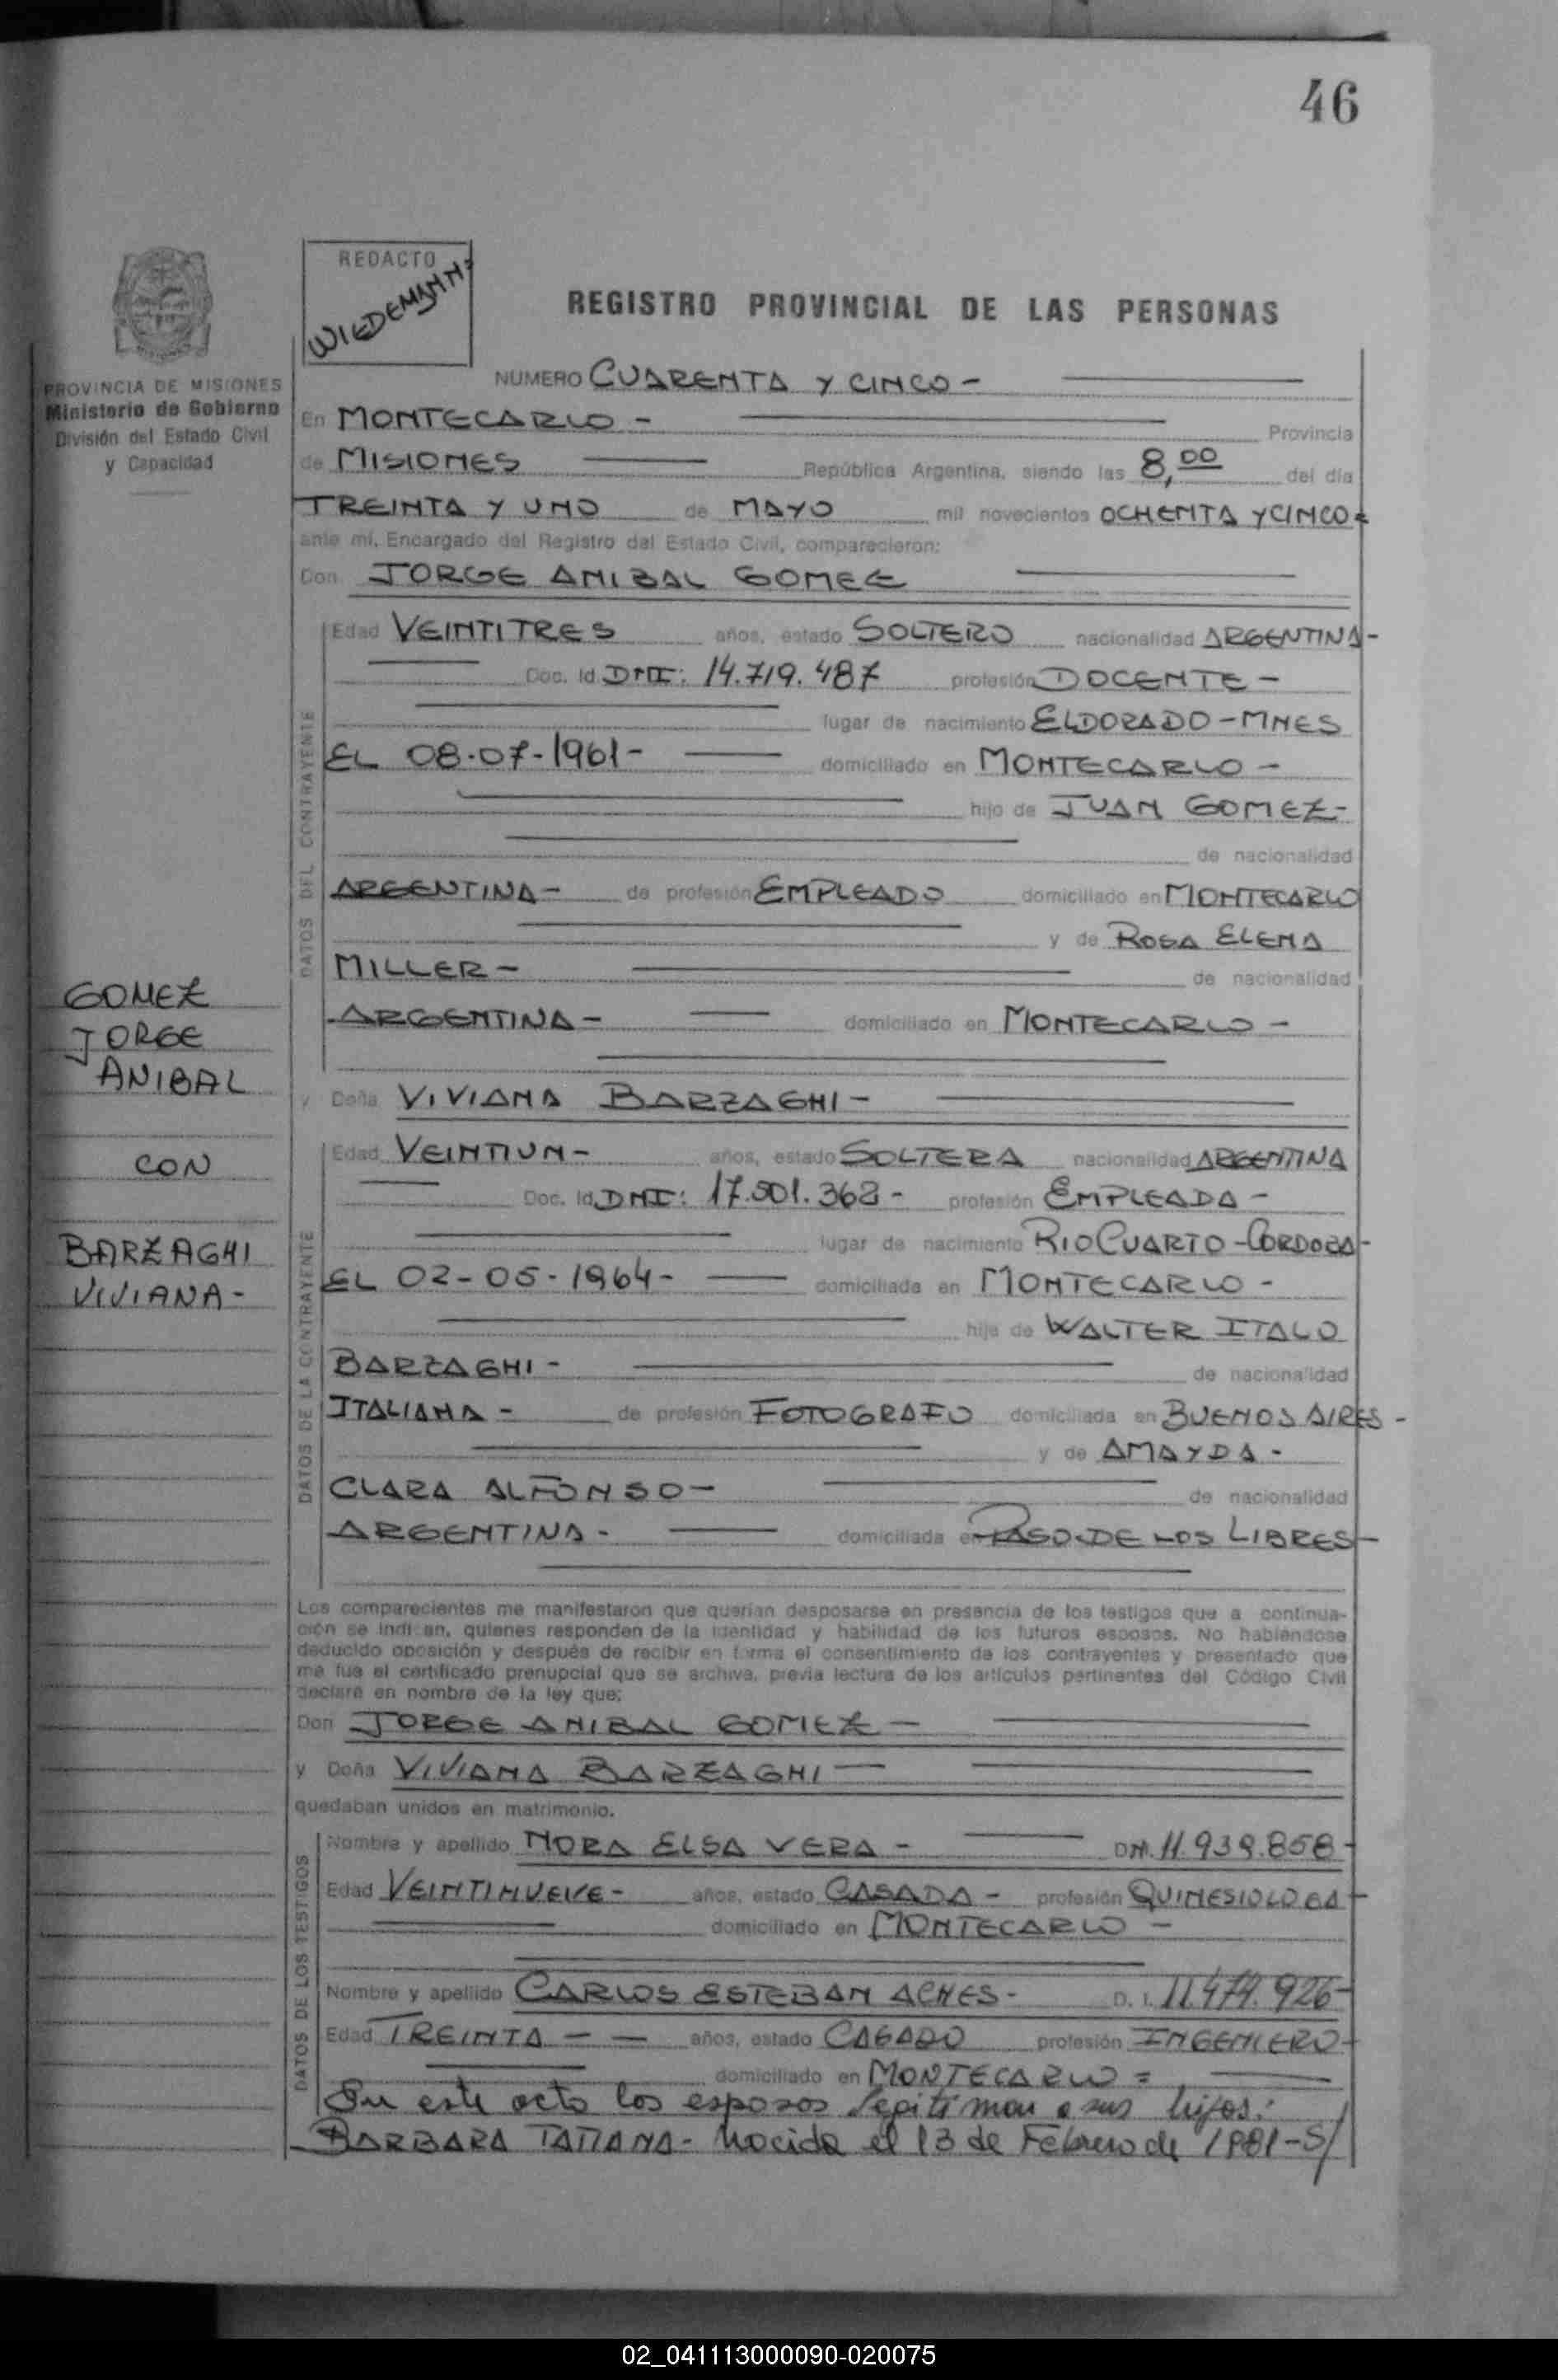 46
REDACTO
WIEDEMANN-
REGISTRO PROVINCIAL DE LAS PERSONAS
PROVINCIA DE MISIONES
Ministerio de Gobierno
División del Estado Civil
y Capacidad
NUMERO CUARENTA Y CINCO -
En MONTECARLO - Provincia
de MISIONES República Argentina, siendo las 8,00 del día
TREINTA Y UNO de MAYO mil novecientos OCHENTA Y CINCO-
ante mí, Encargado del Registro del Estado Civil, comparecieron:
Don JORGE ANIBAL GOMEZ
DATOS DEL CONTRAYENTE
Edad VEINTITRES años, estado SOLTERO nacionalidad ARGENTINA-
Doc. Id. DNI: 14.719.487 profesión DOCENTE -
lugar de nacimiento ELDORADO-MNES
EL 08-07-1961- domiciliado en MONTECARLO -
hijo de JUAN GOMEZ-
de nacionalidad
ARGENTINA- de profesión EMPLEADO domiciliado en MONTECARLO
y de ROSA ELENA
MILLER - de nacionalidad
ARGENTINA - domiciliado en MONTECARLO -
y Doña VIVIANA BARZAGHI -
DATOS DE LA CONTRAYENTE
Edad VEINTIUN - años, estado SOLTERA nacionalidad ARGENTINA
Doc. Id. DNI: 17.501.362- profesión EMPLEADA -
lugar de nacimiento RIO CUARTO - CORDOBA-
EL 02-05-1964- domiciliada en MONTECARLO -
hija de WALTER ITALO
BARZAGHI - de nacionalidad
ITALIANA - de profesión FOTOGRAFO domiciliada en BUENOS AIRES -
y de AMAYDA -
CLARA ALFONSO - de nacionalidad
ARGENTINA - domiciliada en PASO DE LOS LIBRES -
GOMEZ
JORGE
ANIBAL
CON
BARZAGHI
VIVIANA -
Los comparecientes me manifestaron que querían desposarse en presencia de los testigos que a continua-
ción se indican, quienes responden de la identidad y habilidad de los futuros esposos. No habiéndose
deducido oposición y después de recibir en forma el consentimiento de los contrayentes y presentado que
me fue el certificado prenupcial que se archiva, previa lectura de los artículos pertinentes del Código Civil
declaré en nombre de la ley que:
Don JORGE ANIBAL GOMEZ -
y Doña VIVIANA BARZAGHI -
quedaban unidos en matrimonio.
DATOS DE LOS TESTIGOS
Nombre y apellido NORA ELSA VERA - DNI. 11.939.858-
Edad VEINTINUEVE - años, estado CASADA - profesión QUINESIOLOGA -
domiciliado en MONTECARLO -
Nombre y apellido CARLOS ESTEBAN ACHES - D. I. 11.474.926-
Edad TREINTA - - años, estado CASADO profesión INGENIERO -
domiciliado en MONTECARLO =
En este acto los esposos legitiman a sus hijos:
BARBARA TATIANA - nacida el 13 de Febrero de 1981-S/
02_041113000090-020075